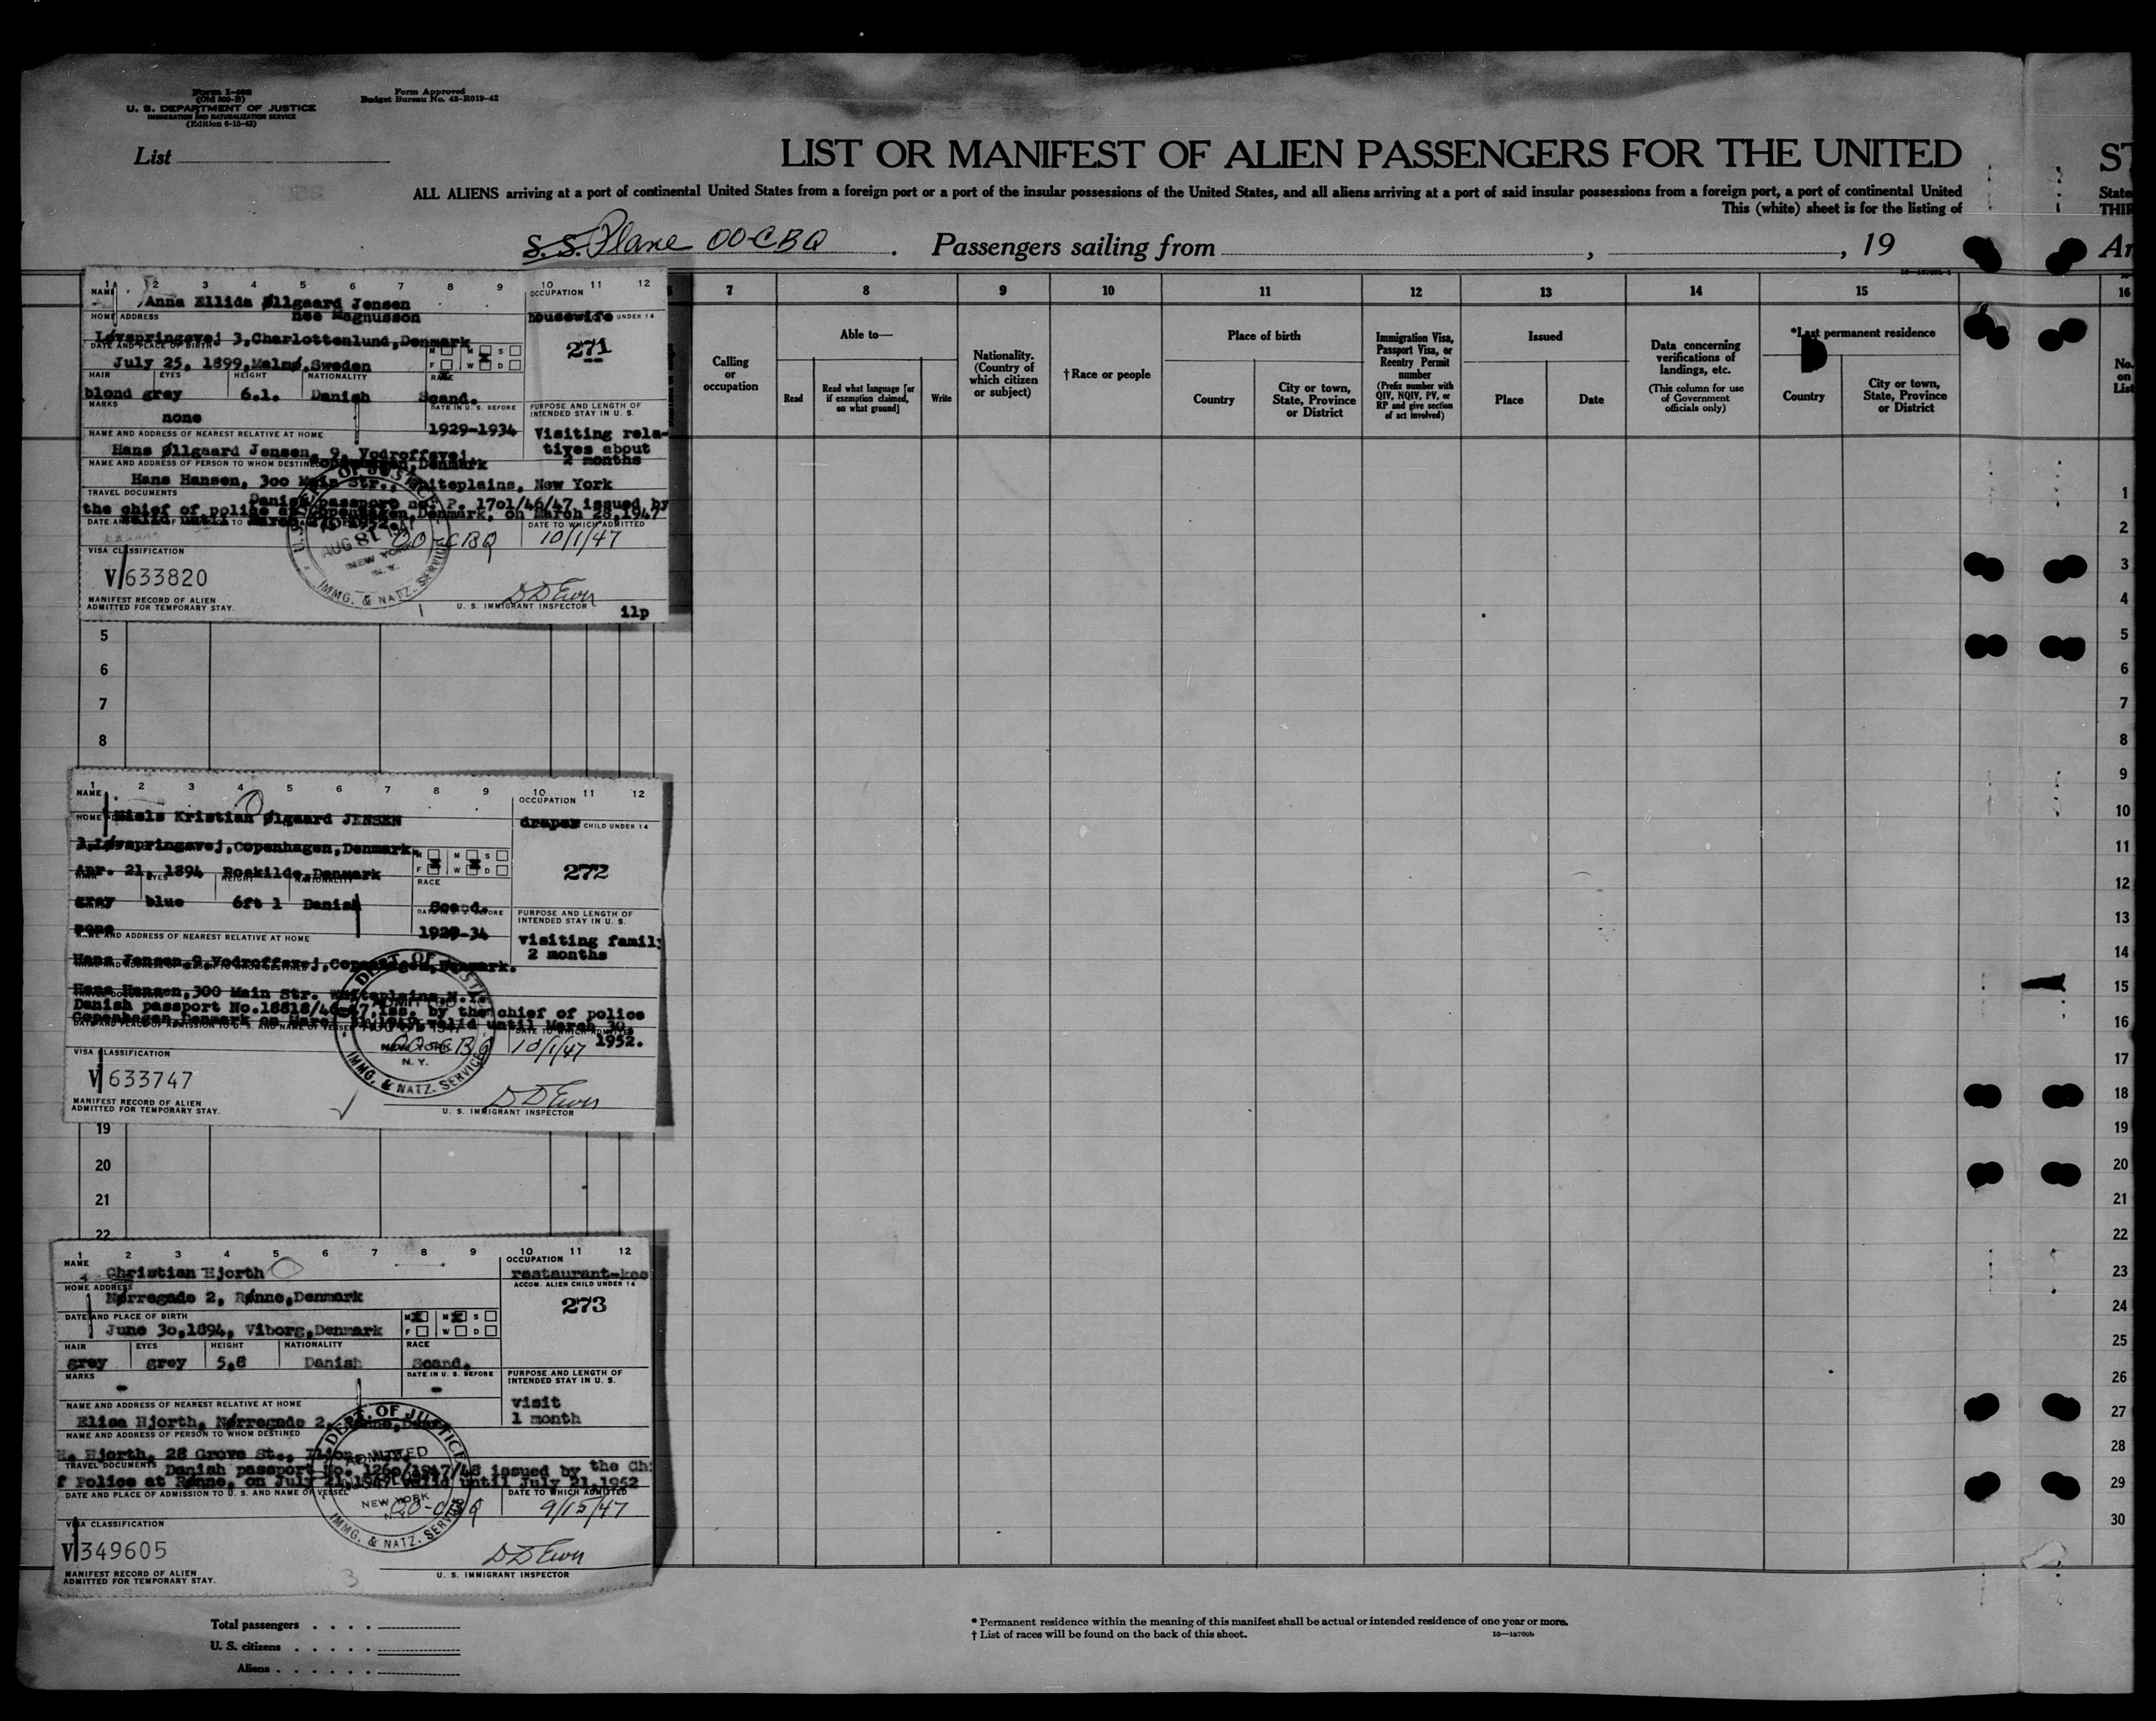 Form I-408
(Old 500-B)
U. S. DEPARTMENT OF JUSTICE
IMMIGRATION AND NATURALIZATION SERVICE
(Edition 6-15-43)
Form Approved
Budget Bureau No. 43-R019-42
List
LIST OR MANIFEST OF ALIEN PASSENGERS FOR THE UNITED
ST
ALL ALIENS arriving at a port of continental United States from a foreign port or a port of the insular possessions of the United States, and all aliens arriving at a port of said insular possessions from a foreign port, a port of continental United
State
This (white) sheet is for the listing of
THIR
S. S. Plane OO-CBQ . Passengers sailing from , , 19
Ar
7 8 9 10 11 12 13 14 15 16
Calling
or
occupation
Able to—
Read
Read what language [or
if exemption claimed,
on what ground]
Write
Nationality.
(Country of
which citizen
or subject)
†Race or people
Place of birth
Country
City or town,
State, Province
or District
Immigration Visa,
Passport Visa, or
Reentry Permit
number
(Prefix number with
QIV, NQIV, PV, or
RP and give section
of act involved)
Issued
Place
Date
Data concerning
verifications of
landings, etc.
(This column for use
of Government
officials only)
*Last permanent residence
Country
City or town,
State, Province
or District
No.
on
List
1 2 3 4 5 6 7 8 9 10 11 12
NAME
Anna Ellida Øllgaard Jensen
nee Magnusson
OCCUPATION
housewife
UNDER 14
HOME ADDRESS
Løvspringsvej 3,Charlottenlund,Denmark
DATE AND PLACE OF BIRTH
July 25, 1899,Malmø,Sweden
M M S
F W D
271
HAIR EYES HEIGHT NATIONALITY RACE
blond grey 6.1. Danish Scand.
MARKS
none
DATE IN U. S. BEFORE
1929-1934
PURPOSE AND LENGTH OF
INTENDED STAY IN U. S.
Visiting rela-
tives about
2 months
NAME AND ADDRESS OF NEAREST RELATIVE AT HOME
Hans Øllgaard Jensen, 9, Vodroffsvej,
Copenhagen,Denmark
NAME AND ADDRESS OF PERSON TO WHOM DESTINED
Hans Hansen, 300 Main Str., Whiteplains, New York
TRAVEL DOCUMENTS
Danish passport no: P. 1701/46/47 issued by
the chief of police at Copenhagen,Denmark, on March 28,1947
valid until March 1952.
DATE TO WHICH ADMITTED
AUG 31
NEW YORK
N. Y.
IMMG. & NATZ. SERVICE
OO-CBQ
10/1/47
VISA CLASSIFICATION
V 633820
MANIFEST RECORD OF ALIEN
ADMITTED FOR TEMPORARY STAY.
U. S. IMMIGRANT INSPECTOR
ilp
5
6
7
8
1 2 3 4 5 6 7 8 9 10 11 12
NAME
Niels Kristian Ølgaard JENSEN
OCCUPATION
draper
CHILD UNDER 14
HOME
3,Løvspringsvej,Copenhagen,Denmark.
Apr. 21, 1894 Roskilde,Denmark
M M S
F W D
272
EYES HEIGHT NATIONALITY RACE
gray blue 6ft 1 Danish Scand.
none
1929-34
PURPOSE AND LENGTH OF
INTENDED STAY IN U. S.
visiting family
2 months
NAME AND ADDRESS OF NEAREST RELATIVE AT HOME
Hans Jensen,9 Vodroffsvej,Copenhagen,Denmark.
Hans Hansen,300 Main Str. Whiteplains,N.Y.
Danish passport No.18818/46-47,iss. by the chief of police
Copenhagen,Denmark on March 31,1947,valid until March 30,
1952.
DEPT. OF JUSTICE
ADMITTED
NEW YORK
N. Y.
IMMG. & NATZ. SERVICE
OO-CBQ
10/1/47
VISA CLASSIFICATION
V 633747
MANIFEST RECORD OF ALIEN
ADMITTED FOR TEMPORARY STAY.
U. S. IMMIGRANT INSPECTOR
19
20
21
22
1 2 3 4 5 6 7 8 9 10 11 12
NAME
Christian Hjorth
OCCUPATION
restaurant-kee
HOME ADDRESS
ACCOM. ALIEN CHILD UNDER 14
Nørregade 2, Rønne,Denmark
273
DATE AND PLACE OF BIRTH
June 30,1894, Viborg,Denmark
M M S
F W D
HAIR EYES HEIGHT NATIONALITY RACE
grey grey 5,8 Danish Scand.
MARKS
-
DATE IN U. S. BEFORE
-
PURPOSE AND LENGTH OF
INTENDED STAY IN U. S.
visit
1 month
NAME AND ADDRESS OF NEAREST RELATIVE AT HOME
Elisa Hjorth, Nørregade 2, Rønne,Denm.
NAME AND ADDRESS OF PERSON TO WHOM DESTINED
H. Hjorth, 28 Grove St., Ilion, N.Y.
TRAVEL DOCUMENTS
Danish passport No. 1260/1947/48 issued by the Chi
f Police at Rønne, on July 21,1947 valid until July 21,1952
DATE AND PLACE OF ADMISSION TO U. S. AND NAME OF VESSEL
DATE TO WHICH ADMITTED
DEPT. OF JUSTICE
ADMITTED
NEW YORK
IMMG. & NATZ. SERVICE
OO-CBQ
9/15/47
VISA CLASSIFICATION
V 349605
MANIFEST RECORD OF ALIEN
ADMITTED FOR TEMPORARY STAY.
3
U. S. IMMIGRANT INSPECTOR
1
2
3
4
5
6
7
8
9
10
11
12
13
14
15
16
17
18
19
20
21
22
23
24
25
26
27
28
29
30
Total passengers
U. S. citizens
Aliens
* Permanent residence within the meaning of this manifest shall be actual or intended residence of one year or more.
† List of races will be found on the back of this sheet.